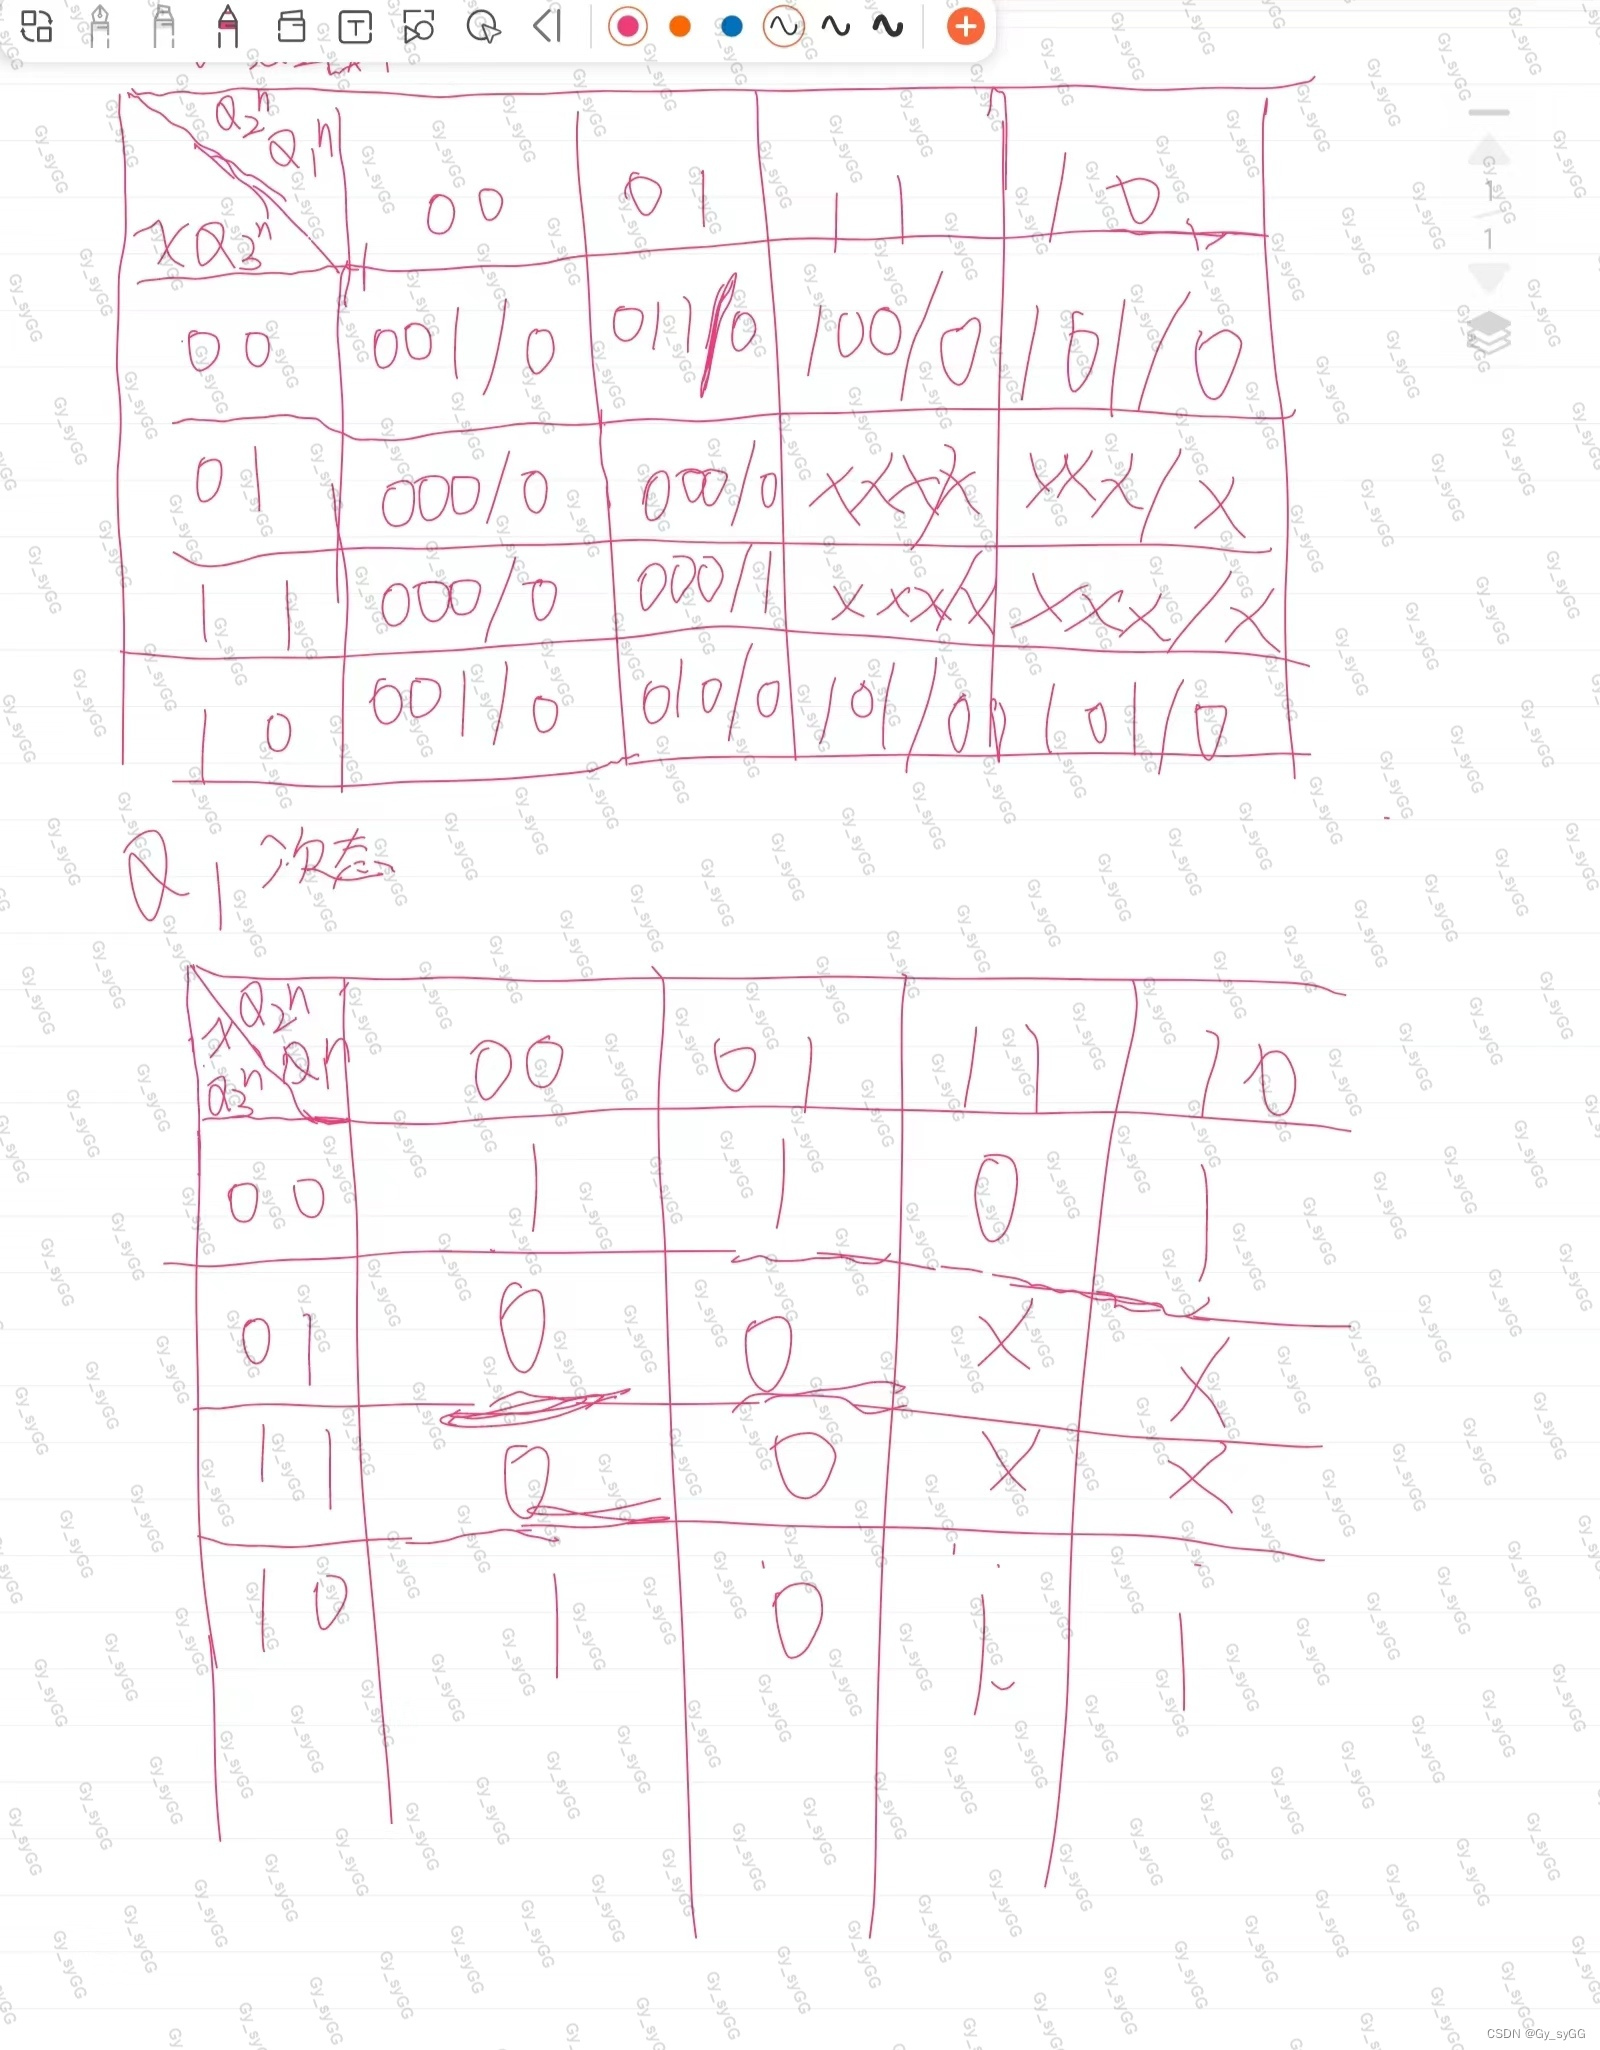 Q₂ⁿ Q₁ⁿ
XQ₃ⁿ
00 01 11 10
00 001/0 011/0 100/0 101/0
01 000/0 000/0 XXX/X XXX/X
11 000/0 000/1 XXX/X XXX/X
10 001/0 010/0 101/0 101/0
Q1 次态
Q₂ⁿ Q₁ⁿ
X Q₃ⁿ
00 01 11 10
00 1 1 0 1
01 0 0 X X
11 0 0 X X
10 1 0 1 1
1
1
CSDN @Gy_syGG